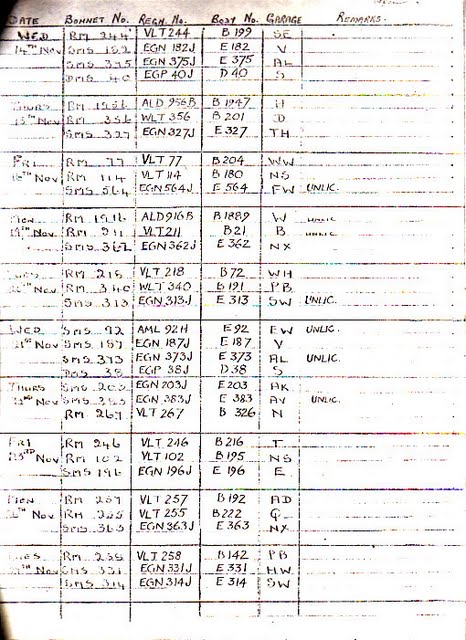 DATE BONNET No. REGN. No. BODY No. GARAGE REMARKS.
WED RM 244 VLT 244 B 199 SE
14TH NOV SMS 182 EGN 182J E 182 V
SMS 375 EGN 375J E 375 AL
DMS 40 EGP 40J D 40 S
THURS RM 1956 ALD 956B B 1947 H
15TH NOV RM 356 WLT 356 B 201 D
SMS 327 EGN 327J E 327 TH
FRI RM 77 VLT 77 B 204 WW
16TH NOV RM 114 VLT 114 B 180 NS
SMS 564 EGN 564J E 564 FW UNLIC.
MON RM 1916 ALD 916B B 1889 W UNLIC
19TH NOV RM 211 VLT 211 B 21 B UNLIC
SMS 362 EGN 362J E 362 NX
TUES RM 218 VLT 218 B 72 WH
20TH NOV RM 340 WLT 340 B 191 PB
SMS 313 EGN 313J E 313 SW UNLIC.
WED SMS 92 AML 92H E 92 EW UNLIC.
21ST NOV SMS 187 EGN 187J E 187 V
SMS 373 EGN 373J E 373 AL UNLIC.
DMS 38 EGP 38J D 38 S
THURS SMS 203 EGN 203J E 203 AK
22ND NOV SMS 383 EGN 383J E 383 AV UNLIC.
RM 267 VLT 267 B 326 N
FRI RM 246 VLT 246 B 216 T
23RD NOV RM 102 VLT 102 B 195 NS
SMS 196 EGN 196J E 196 E
MON RM 257 VLT 257 B 192 AD
26TH NOV RM 255 VLT 255 B 222 G
SMS 363 EGN 363J E 363 NX
TUES RM 258 VLT 258 B 142 PB
27TH NOV SMS 331 EGN 331J E 331 HW
SMS 314 EGN 314J E 314 SW